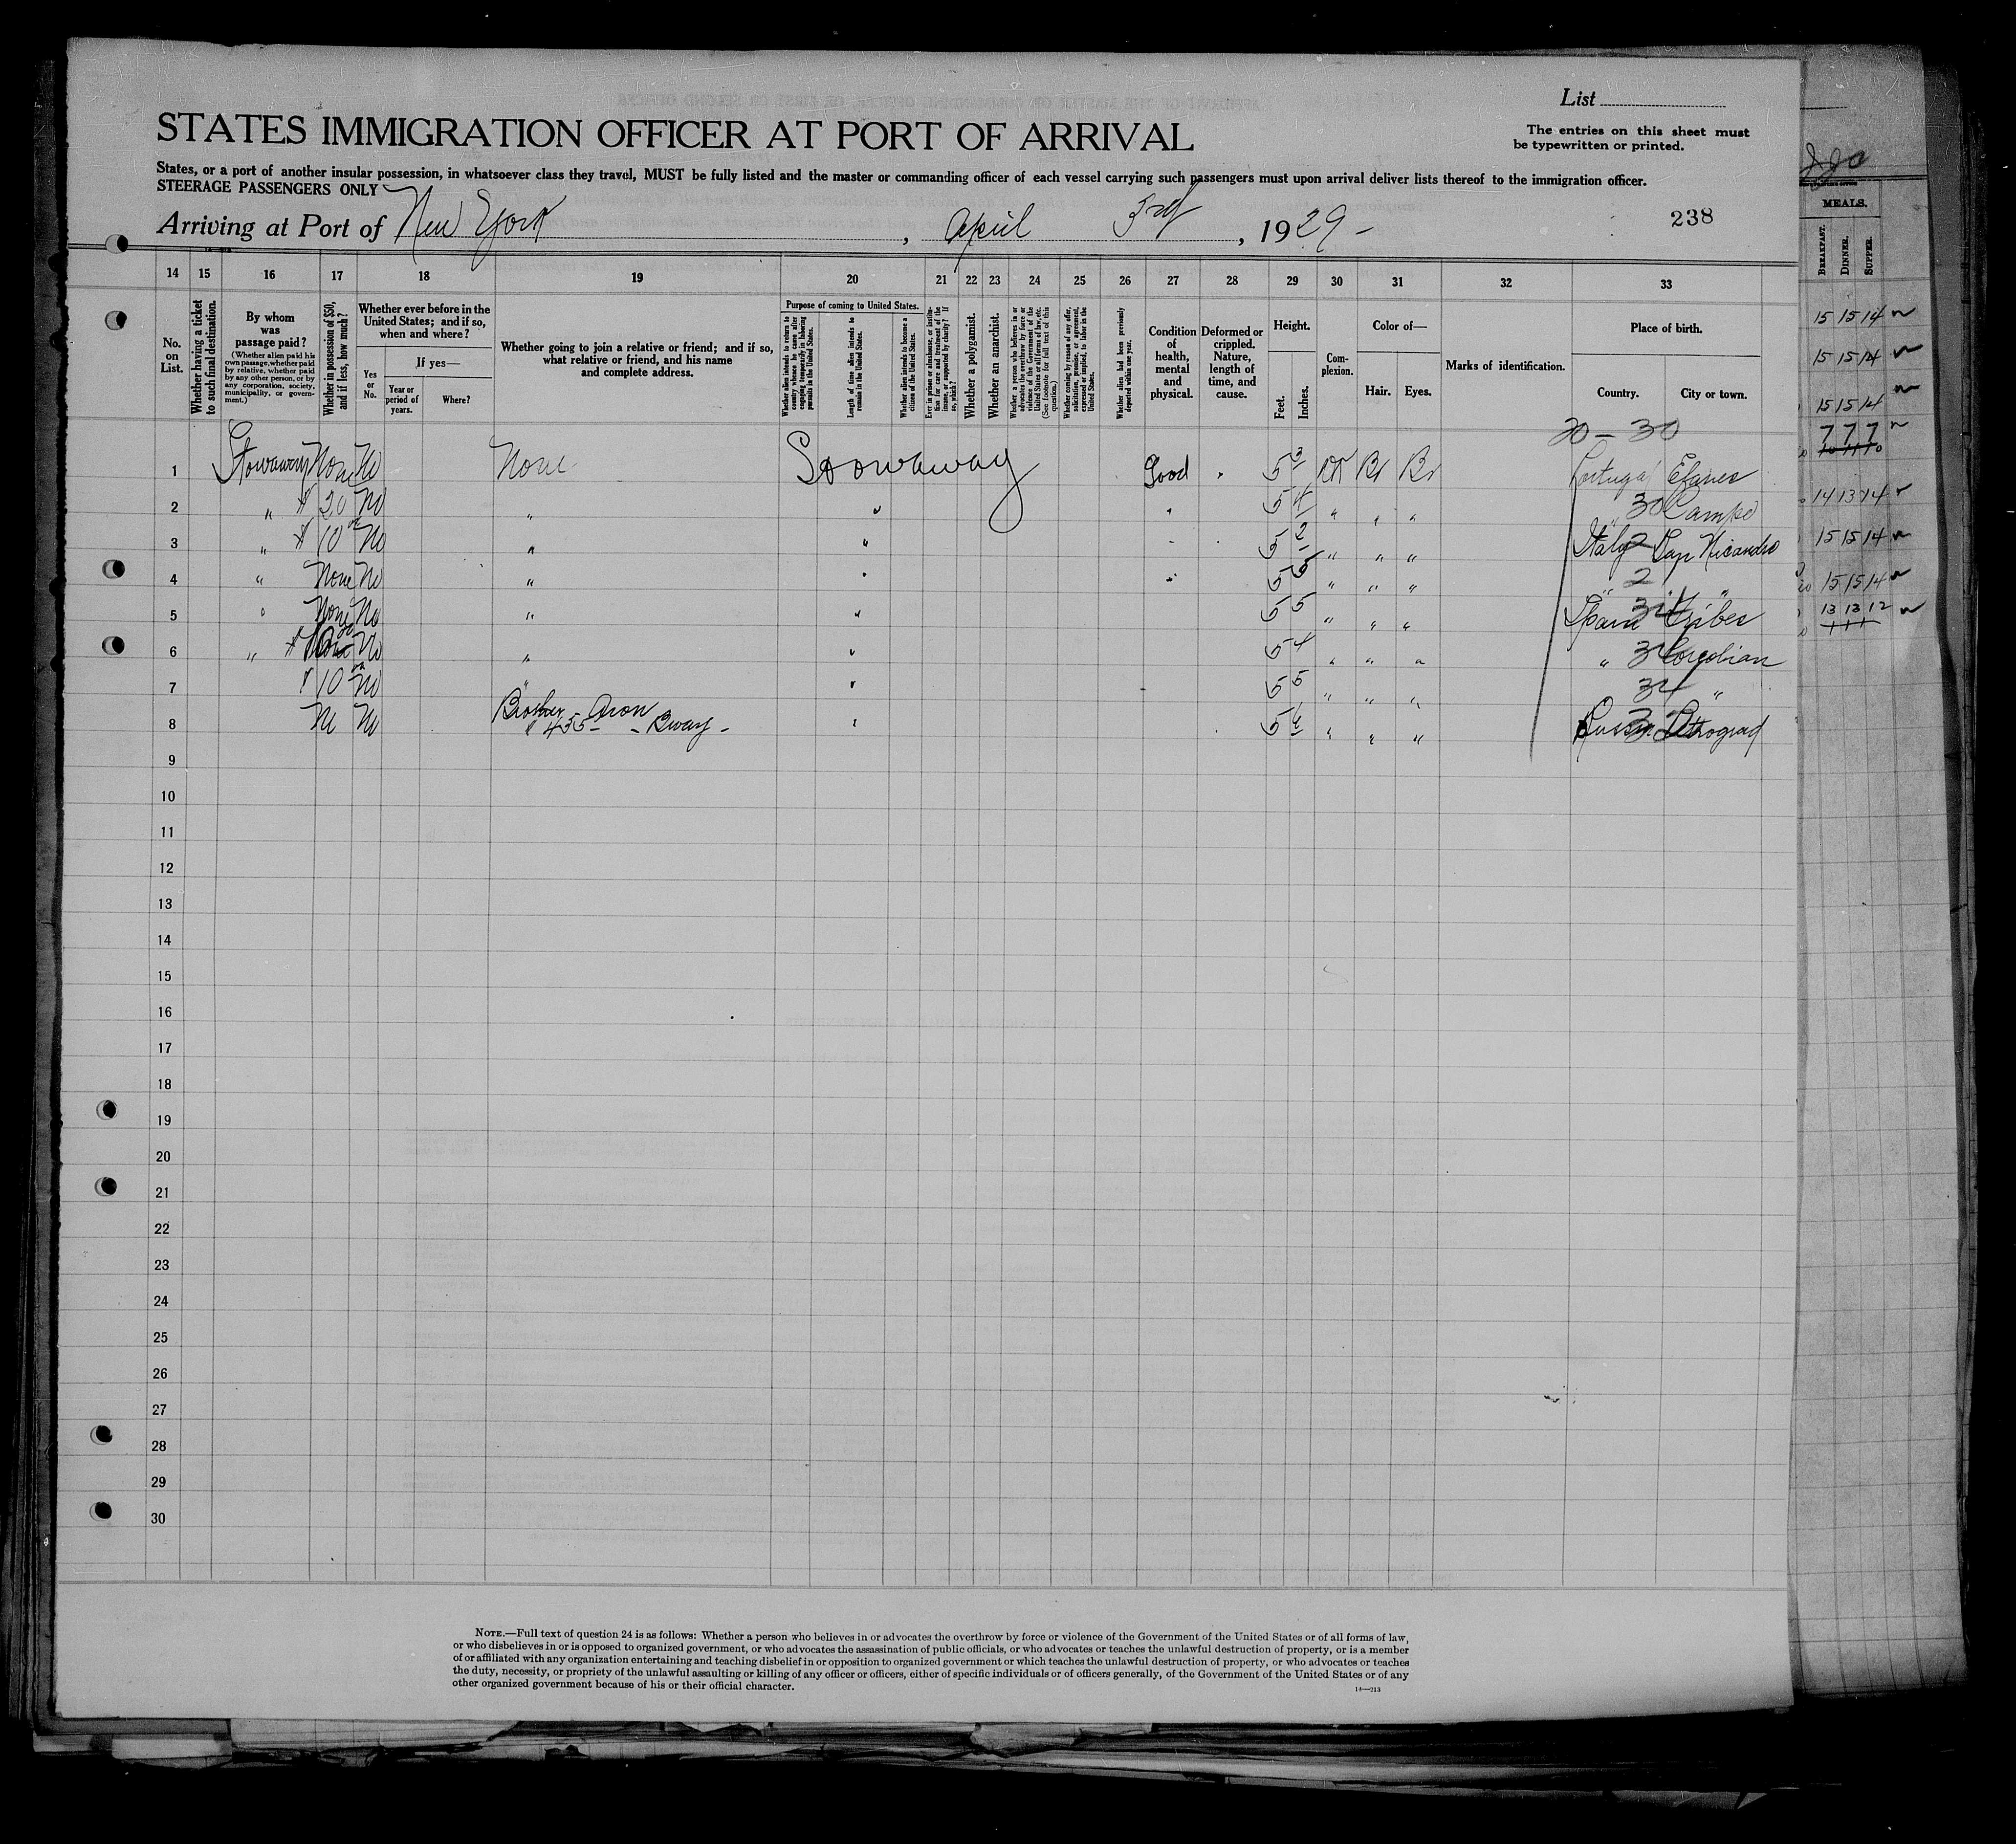 List
STATES IMMIGRATION OFFICER AT PORT OF ARRIVAL
The entries on this sheet must
be typewritten or printed.
States, or a port of another insular possession, in whatsoever class they travel, MUST be fully listed and the master or commanding officer of each vessel carrying such passengers must upon arrival deliver lists thereof to the immigration officer.
STEERAGE PASSENGERS ONLY
Arriving at Port of New York, April 3rd, 1929 -
238
14 15 16 17 18 19 20 21 22 23 24 25 26 27 28 29 30 31 32 33
No. on List.
Whether having a ticket to such final destination.
By whom was passage paid?
(Whether alien paid his own passage, whether paid by relative, whether paid by any other person, or by any corporation, society, municipality, or government.)
Whether in possession of $50, and if less, how much?
Whether ever before in the United States; and if so, when and where?
Yes or No.
If yes—
Year or period of years.
Where?
Whether going to join a relative or friend; and if so, what relative or friend, and his name and complete address.
Purpose of coming to United States.
Whether alien intends to return to country whence he came after engaging temporarily in laboring pursuits in the United States.
Length of time alien intends to remain in the United States.
Whether alien intends to become a citizen of the United States.
Ever in prison or almshouse, or institution for care and treatment of the insane, or supported by charity? If so, which?
Whether a polygamist.
Whether an anarchist.
Whether a person who believes in or advocates the overthrow by force or violence of the Government of the United States or all forms of law, etc. (See footnote for full text of this question.)
Whether coming by reason of any offer, solicitation, promise, or agreement, expressed or implied, to labor in the United States.
Whether alien had been previously deported within one year.
Condition of health, mental and physical.
Deformed or crippled. Nature, length of time, and cause.
Height.
Feet. Inches.
Complexion.
Color of—
Hair. Eyes.
Marks of identification.
Place of birth.
Country. City or town.
20 - 30
1 Stowaway None No None Stowaway Good " 5 3 DK Br Br Portugal
2 " $ 20 No " " " 5 4 " " " " 30 Campo
3 " $ 10 No " " 5 2 " " " Italy 2 San Nicandro
4 " None No " " " 5 5 " " " " 2 "
5 " None No " " 5 5 " " " Spain
6 " $ No " " 5 4 " " " "
7 $ 10 No " " 5 5 " " " 34 "
8 No No Brother Aron 455 - Bway - " 5 4 " " " Russia Petrograd
9
10
11
12
13
14
15
16
17
18
19
20
21
22
23
24
25
26
27
28
29
30
NOTE.—Full text of question 24 is as follows: Whether a person who believes in or advocates the overthrow by force or violence of the Government of the United States or of all forms of law,
or who disbelieves in or is opposed to organized government, or who advocates the assassination of public officials, or who advocates or teaches the unlawful destruction of property, or is a member
of or affiliated with any organization entertaining and teaching disbelief in or opposition to organized government or which teaches the unlawful destruction of property, or who advocates or teaches
the duty, necessity, or propriety of the unlawful assaulting or killing of any officer or officers, either of specific individuals or of officers generally, of the Government of the United States or of any
other organized government because of his or their official character.
14—213
MEALS.
BREAKFAST. DINNER. SUPPER.
15 15 14
15 15 14
15 15 14
7 7 7
14 13 14
15 15 14
15 15 14
13 13 12